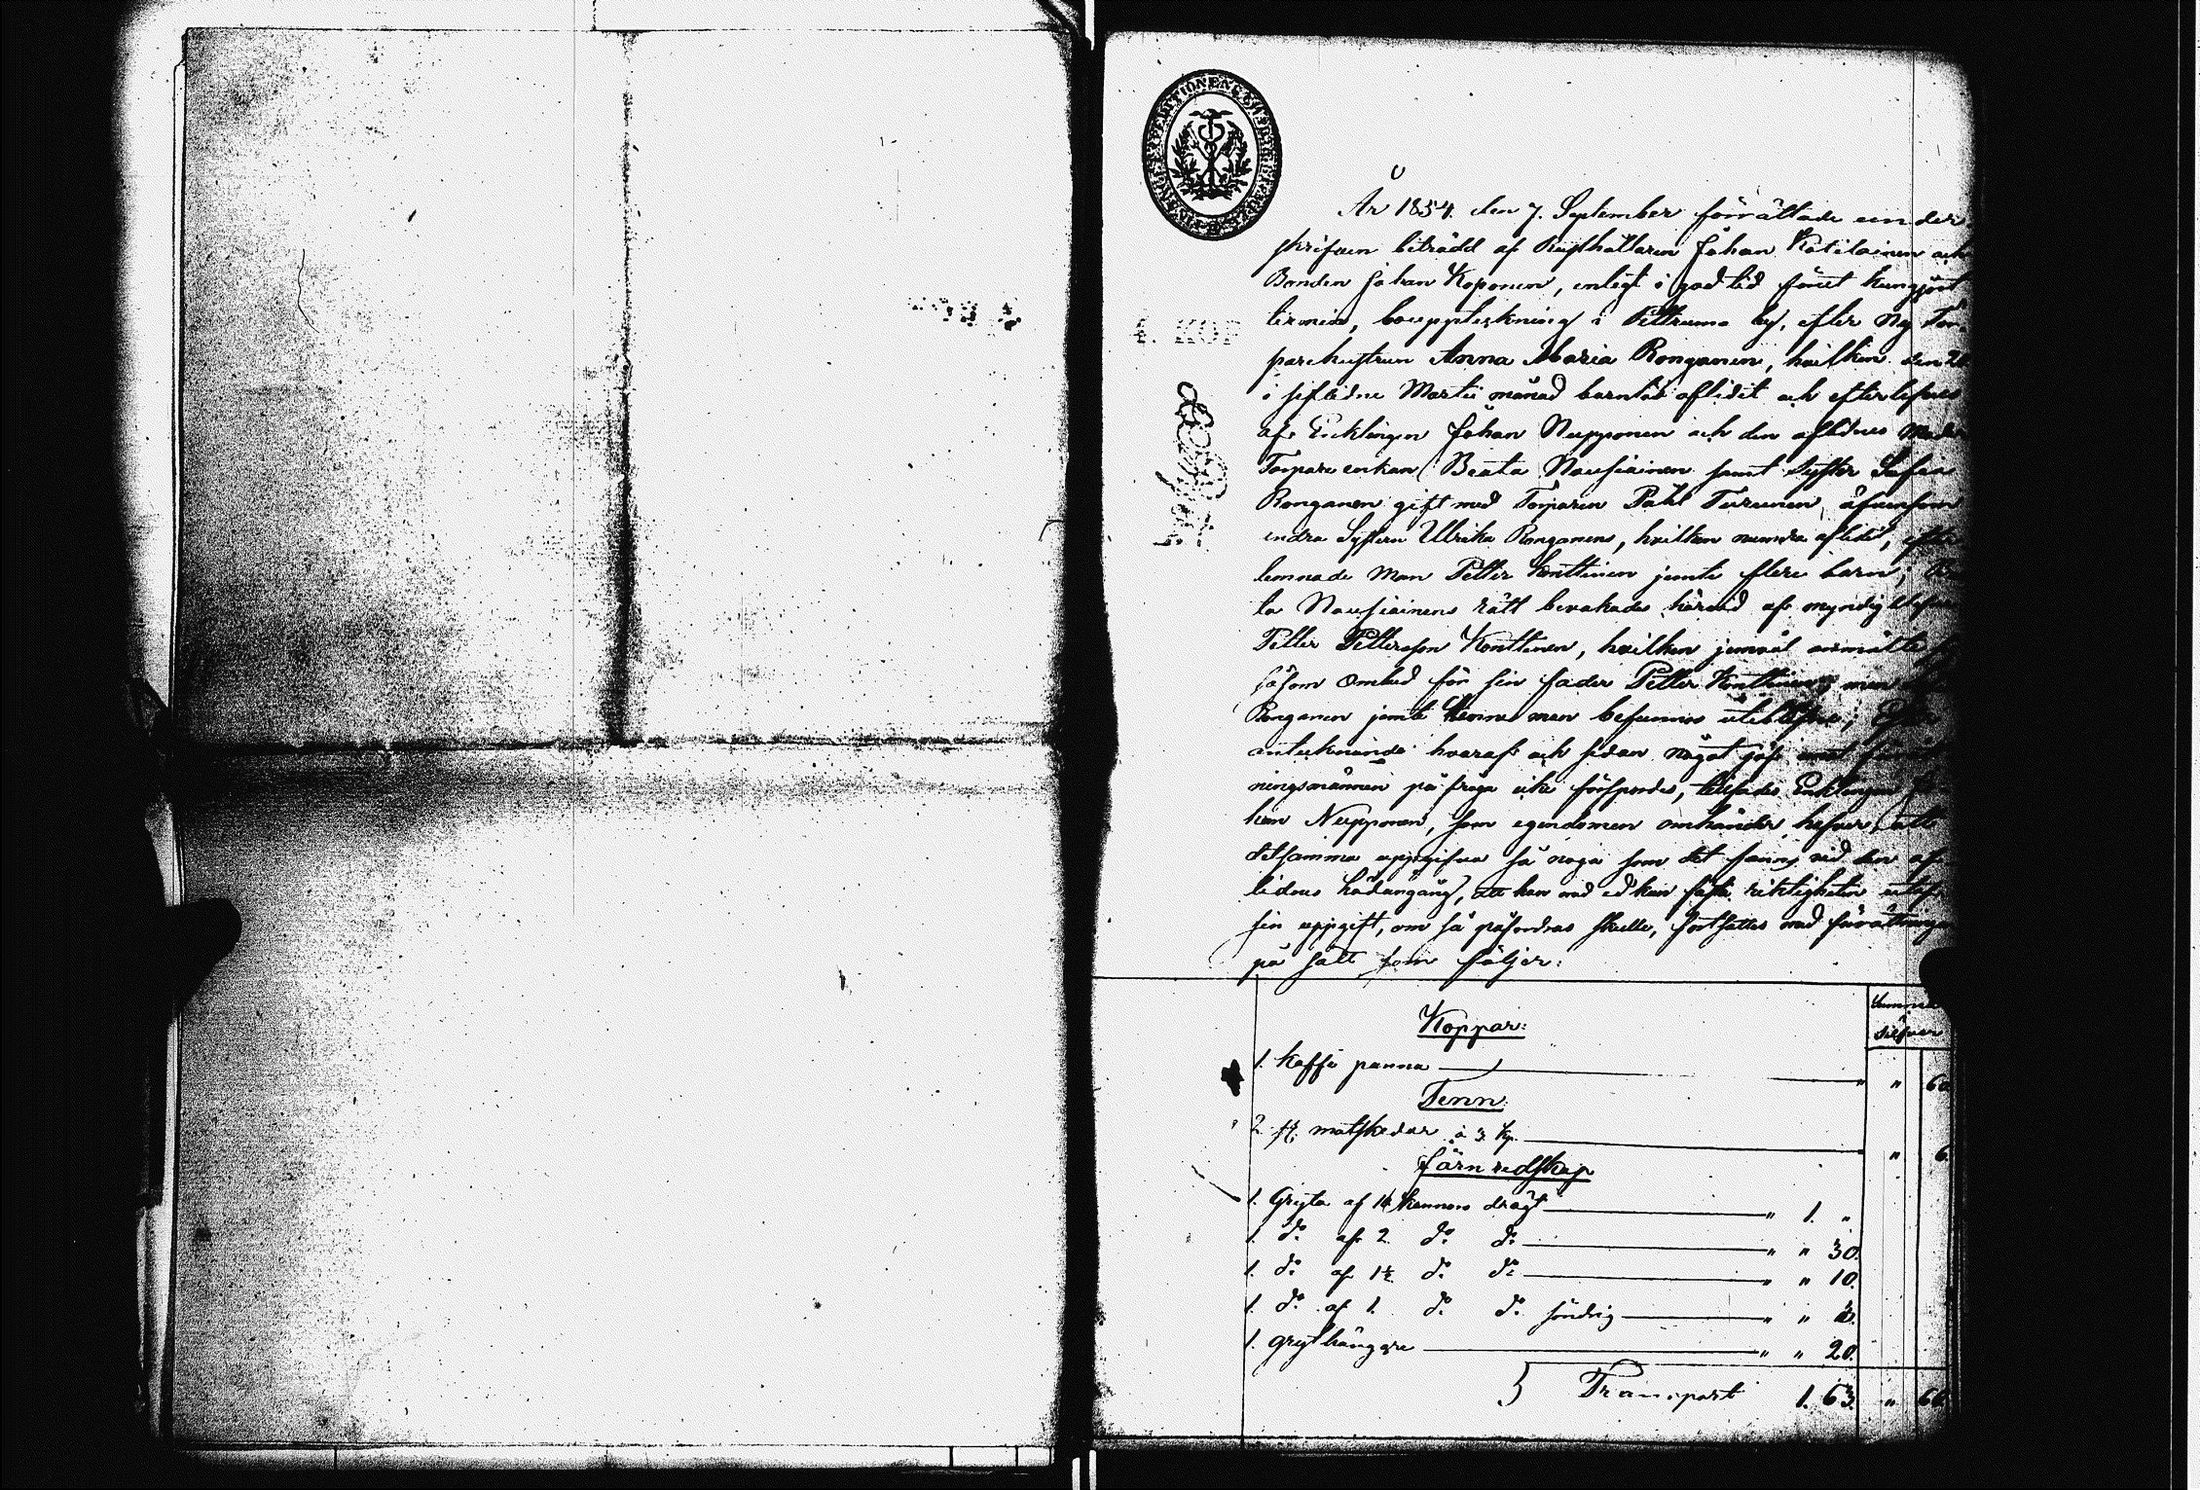 År 1854. den 7. September förrättade under
skrifven biträdd af Rusthållaren Johan Katilainen och
Bonden Johan Koponen, enligt i god tid förut kungjord
termin, bouppteckning i by, efter Tor
parehustrun Anna Maria Ronganen, hvilken den
i sistledne Martii månad barnlös aflidit och efterlefves
af Enklingen Johan Nupponen och den aflidnes Moder
Torpare enkan Beata Nousiainen samt Syster
Ronganen gift med Torparen Påhl Turunen, äfvensom
andra Systern Ulrika Ronganens, hvilken numera aflidit, efter
lemnade Man Petter Konttinen jemte flere barn;
ta Nousiainens rätt bevakades härvid af myndig
Petter Pettersson Konttinen, hvilken jemväl anmälte
såsom Ombud för sin fader Petter Konttinen; men
Ronganen jemte hennes man befunnos uteblifne;
antecknande hvaraf och sedan något jäf mot förrätt
ningsmännen på fråga icke försports, tillsades Enklingen Jo
han Nupponen, som egendomen omhänder hafver, att
detsamma uppgifva så noga som det fanns vid den af
lidnes hädangång, att han med ed kan fästa riktigheten utaf
sin uppgift, om så påfordras skulle, fortsattes med förrättningen
på sätt som följer:
4. KOP
Summa
Silfver
Koppar:
1. Kaffe panna " " 60.
Tenn:
2 st. matskedar à 3 kp. " 6.
Järnredskap
1. Gryta af kannors drägt " 1. "
1. do af 2 do do " " 30.
1. do af 1½ do do " " 10.
1. do af 1. do do söndrig " "
1. grythängare " " 20.
Transport 1. 63. " 66.